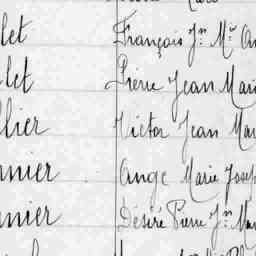 let François Jn Me
let Pierre Jean Marie
llier Victor Jean Mar
nnier Ange Marie Josep
nnier Désiré Pierre Jn Mar